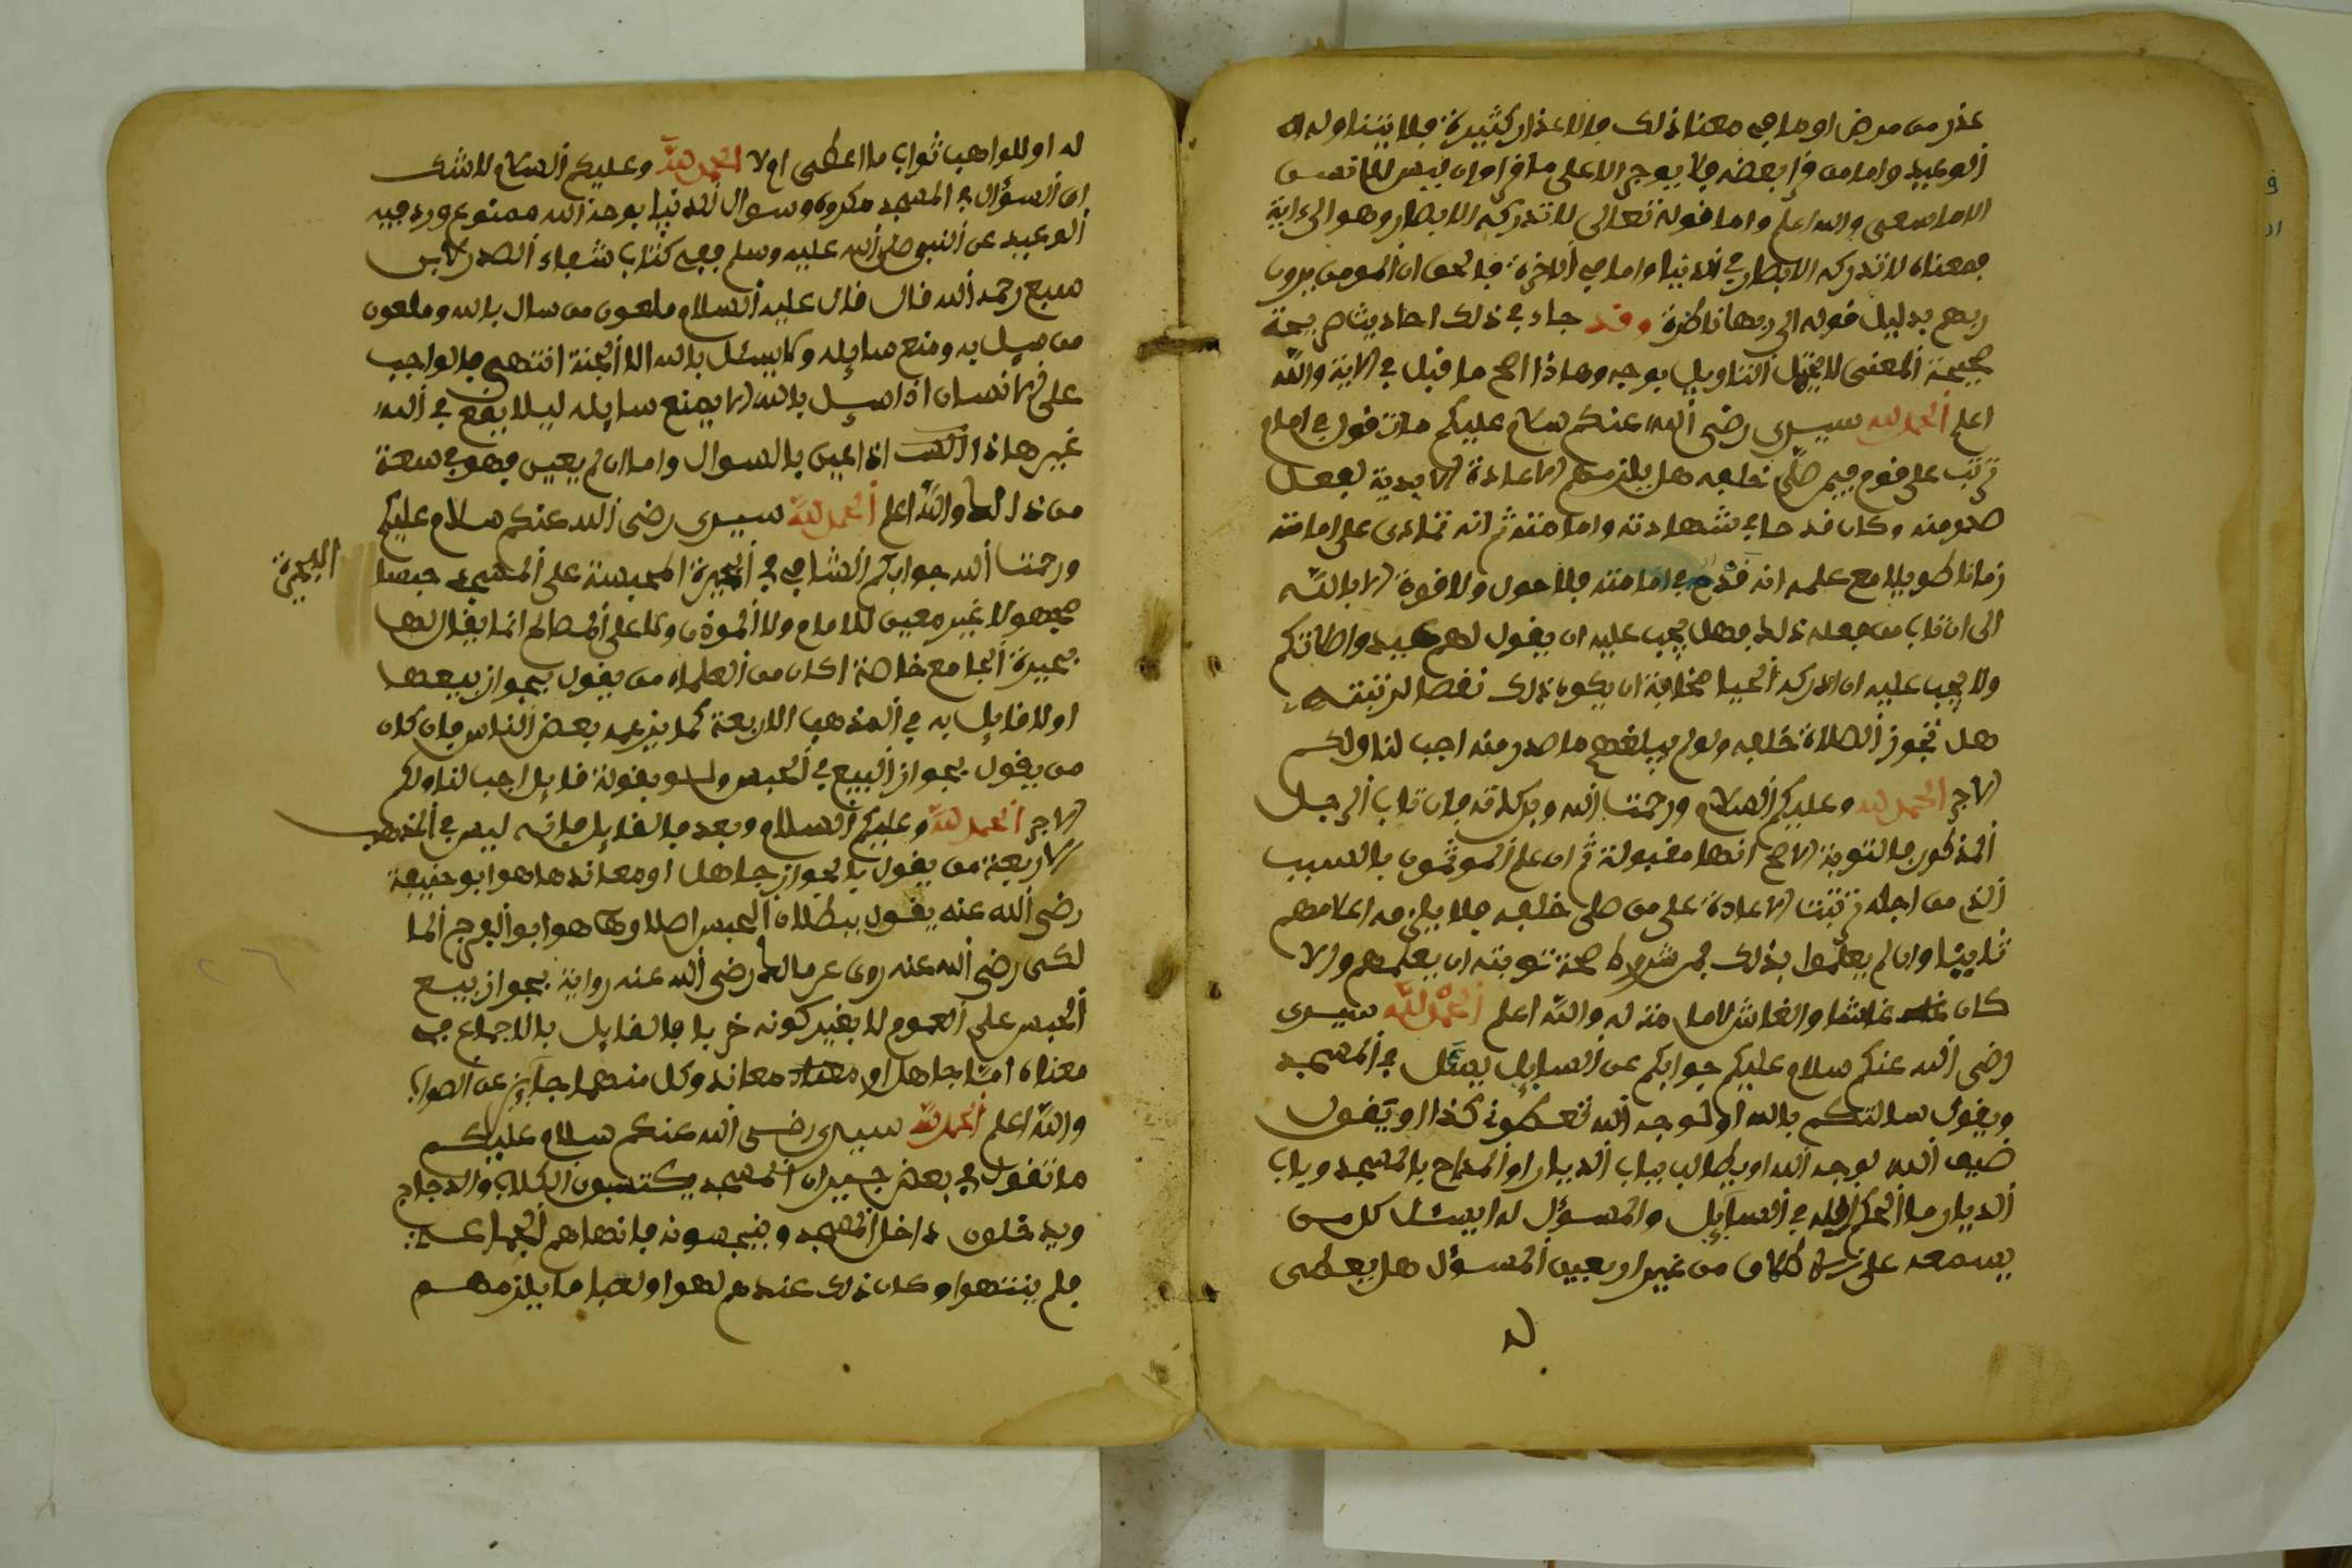 عذر من مرض او ما في معنا ذلك والاعذار كثيرة فلا يتناوله
الوعيد واما من قرا بعضه فلا يوجر الا على ما قرا وان ليس للانسن
الا ما سعى والله اعلم واما قوله تعالى لا تدركه الابصار وهو الى اية
فمعناه لا تدركه الابصار في الدنيا واما في الاخرة فالحق ان المومن يرون
ربهم بدليل قوله الى ربها ناظرة وقد جاء في ذلك احاديث صريحة
صحيحة المعنى لا تحتمل التاويل بوجه وهاذا اصح ما قيل في الاية والله
اعلم الحمد لله سيدي رضي الله عنكم سلام عليكم ما تقول في امام
ترتب على قوم فيمر صلى خلفه هل يلزمهم الاعادة الابدية لفعل
صدر منه وكان قدحا في شهادته وامامته ثم انه تمادى على امامته
زمانا طويلا مع علمه انه قدح في امامته فلا حول ولا قوة الا بالله
الى ان تاب من فعله ذلك فهل يجب عليه ان يقول لهم اعيدوا صلاتكم
ولا يجب عليه ان ادركه الحيا مخافة ان يكون ذلك نقصا لرتبته
هل تجوز الصلاة خلفه ولو لم يبلغهم ما صدر منه اجب لنا ولكم
الاجر الحمد لله وعليكم السلام ورحمت الله وبركاته فان تاب الرجل
المذكور فالتوبة الاصح انها مقبولة ثم ان علم الموتمون بالسبب
الذي من اجله ترتبت الاعادة على من صلى خلفه فلا يلزمه اعلامهم
ثانيا وان لم يعلموا بذلك فمن شروط صحة توبته ان يعلمهم والا
كان غاشا والغاش لا امامة له والله اعلم الحمد لله سيدي
رضي الله عنكم سلام عليكم جوابكم عن السايل يسئل في المسجد
ويقول سالتكم بالله او لوجه الله تعطوني كذا او يقول
ضيف الله لوجه الله او يطالب بباب الديار او المداح بالمسجد وباب
الديار ما الحكم الله في السايل والمسؤل له ايسئل كل من
يسمعه على من غير او بعين المسؤل هل يعطى
له
له او للواهب ثواب ما اعطى او لا الحمد لله وعليكم السلام لا شك
ان السؤال في المسجد مكروه وسوال الدنيا بوجه الله ممنوع ورد فيه
الوعيد عن النبي صلى الله عليه وسلم ففي كتاب شفاء الصدر لابن
سبع رحمه الله قال قال عليه السلام ملعون من سال بالله وملعون
من سيل به ومنع سايله ولا يسئل بالله الا الجنة انتهى فالواجب
على الانسان اذا سيل بالله الا يمنع سايله ليلا يقع في الله
غير هاذا اذا عين بالسوال واما ان لم يعين فهو في سعة
من ذالك والله اعلم الحمد لله سيدي رضي الله عنكم سلام عليكم
ورحمت الله جوابكم الشافي في البحيرة المحبسة على المسجد حبسا
البحيرة
مجهولا غير معين للامام ولا الموذن ولا على المصالح انما يقال لها
بحيرة الجامع خاصة اكان من العلماء من يقول بجواز بيعها
او لا قايل به في المذهب الاربعة كما يزعمه بعض الناس فان كان
من يقول بجواز البيع في الحبس ولو بقولة قايل اجب لنا ولكم
الاجر الحمد لله وعليكم السلام وبعد فالقايل فانه ليس في المذهب
الاربعة من يقول بالجواز جاهل او معاند هاهو ابو حنيفة
رضي الله عنه يقول ببطلان الحبس اصلا وها هو ابو الفرج الما
لكي رضي الله عنه روى عن مالك رضي الله عنه رواية بجواز بيع
الحبس على العموم لا بقيد كونه خربا فالقايل بالاجماع في
معناه اما جاهل او معاند وكل منهما جاير عن الصواب
والله اعلم الحمد لله سيدي رضي الله عنكم سلام عليكم
ما تقول في بعض جيران المسجد يكتسبون الكلاب والدجاج
ويدخلون داخل المسجد وينجسونه فانهاهم الجماعة
فلم ينتهوا وكان ذلك عندهم لهوا ولعبا ما يلزمهم